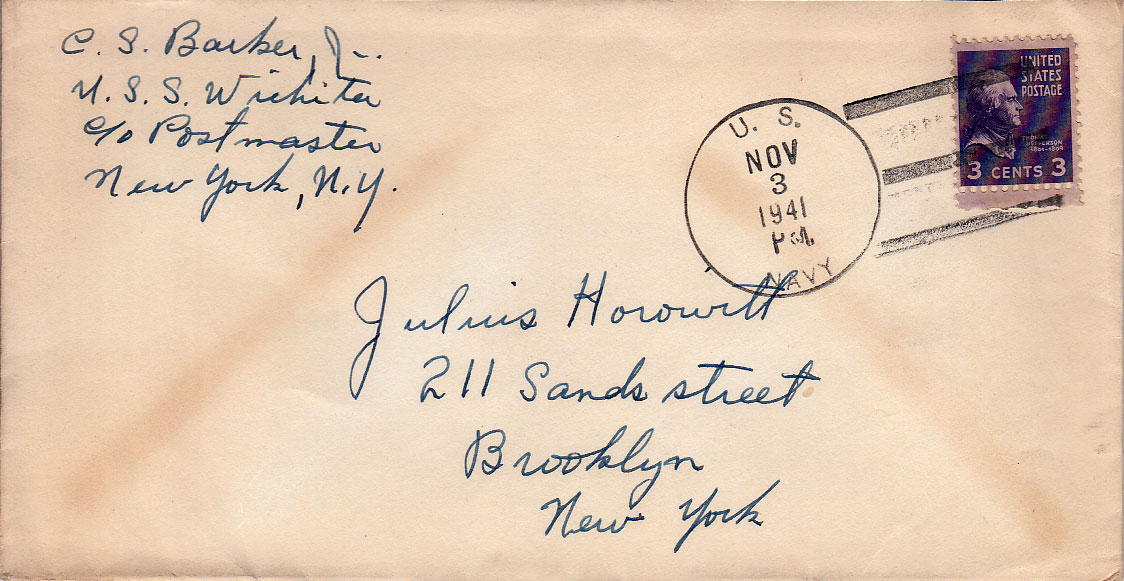 C. S. Barker, Jr.
U.S.S. Wichita
c/o Postmaster
New York, N.Y.
U. S.
NOV
3
1941
P.M.
NAVY
UNITED
STATES
POSTAGE
THOMAS
JEFFERSON
1801-1809
3 CENTS 3
Julius Horowitt
211 Sands street
Brooklyn
New York